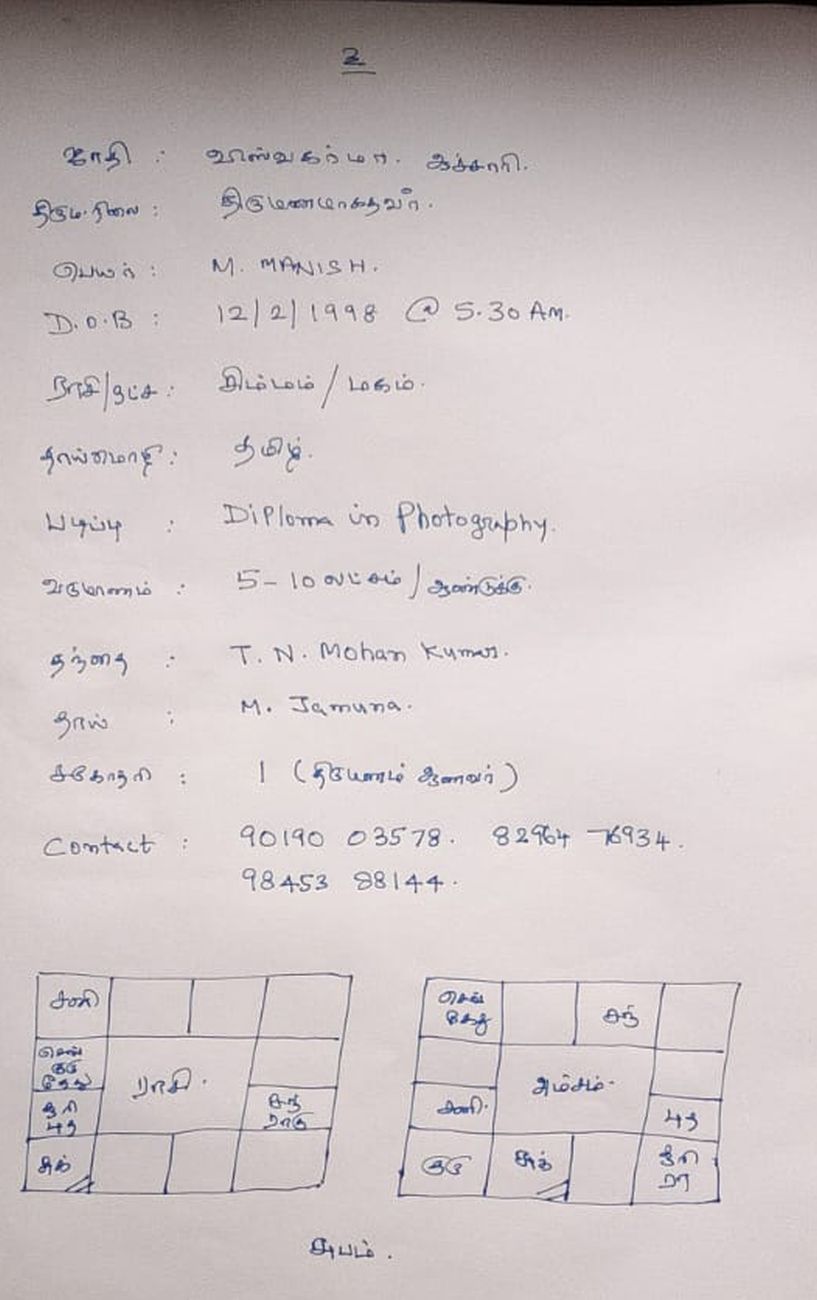 2
ஜாதி : விஸ்வகர்மா. ஆச்சாரி.
திரும.நிலை : திருமணமாகதவர்.
பெயர் : M. MANISH.
D.O.B : 12/2/1998 @ 5.30 AM.
ராசி/நட்ச : சிம்மம் / மகம்.
தாய்மொழி : தமிழ்.
படிப்பு : Diploma in Photography.
வருமாணம் : 5-10 லட்சம் / ஆண்டுக்கு.
தந்தை : T. N. Mohan Kumar.
தாய் : M. Jamuna.
சகோதரி : 1 (திருமணம் ஆனவர்)
Contact : 90190 03578. 82964 76934.
98453 88144.
சனி
செவ்
குரு
கேது
ராசி.
சூரி
புத
சந்
ராகு
சுக்
செவ்
கேது
சந்
அம்சம்.
சனி.
புத
குரு
சுக்
சூரி
ரா
சுபம்.